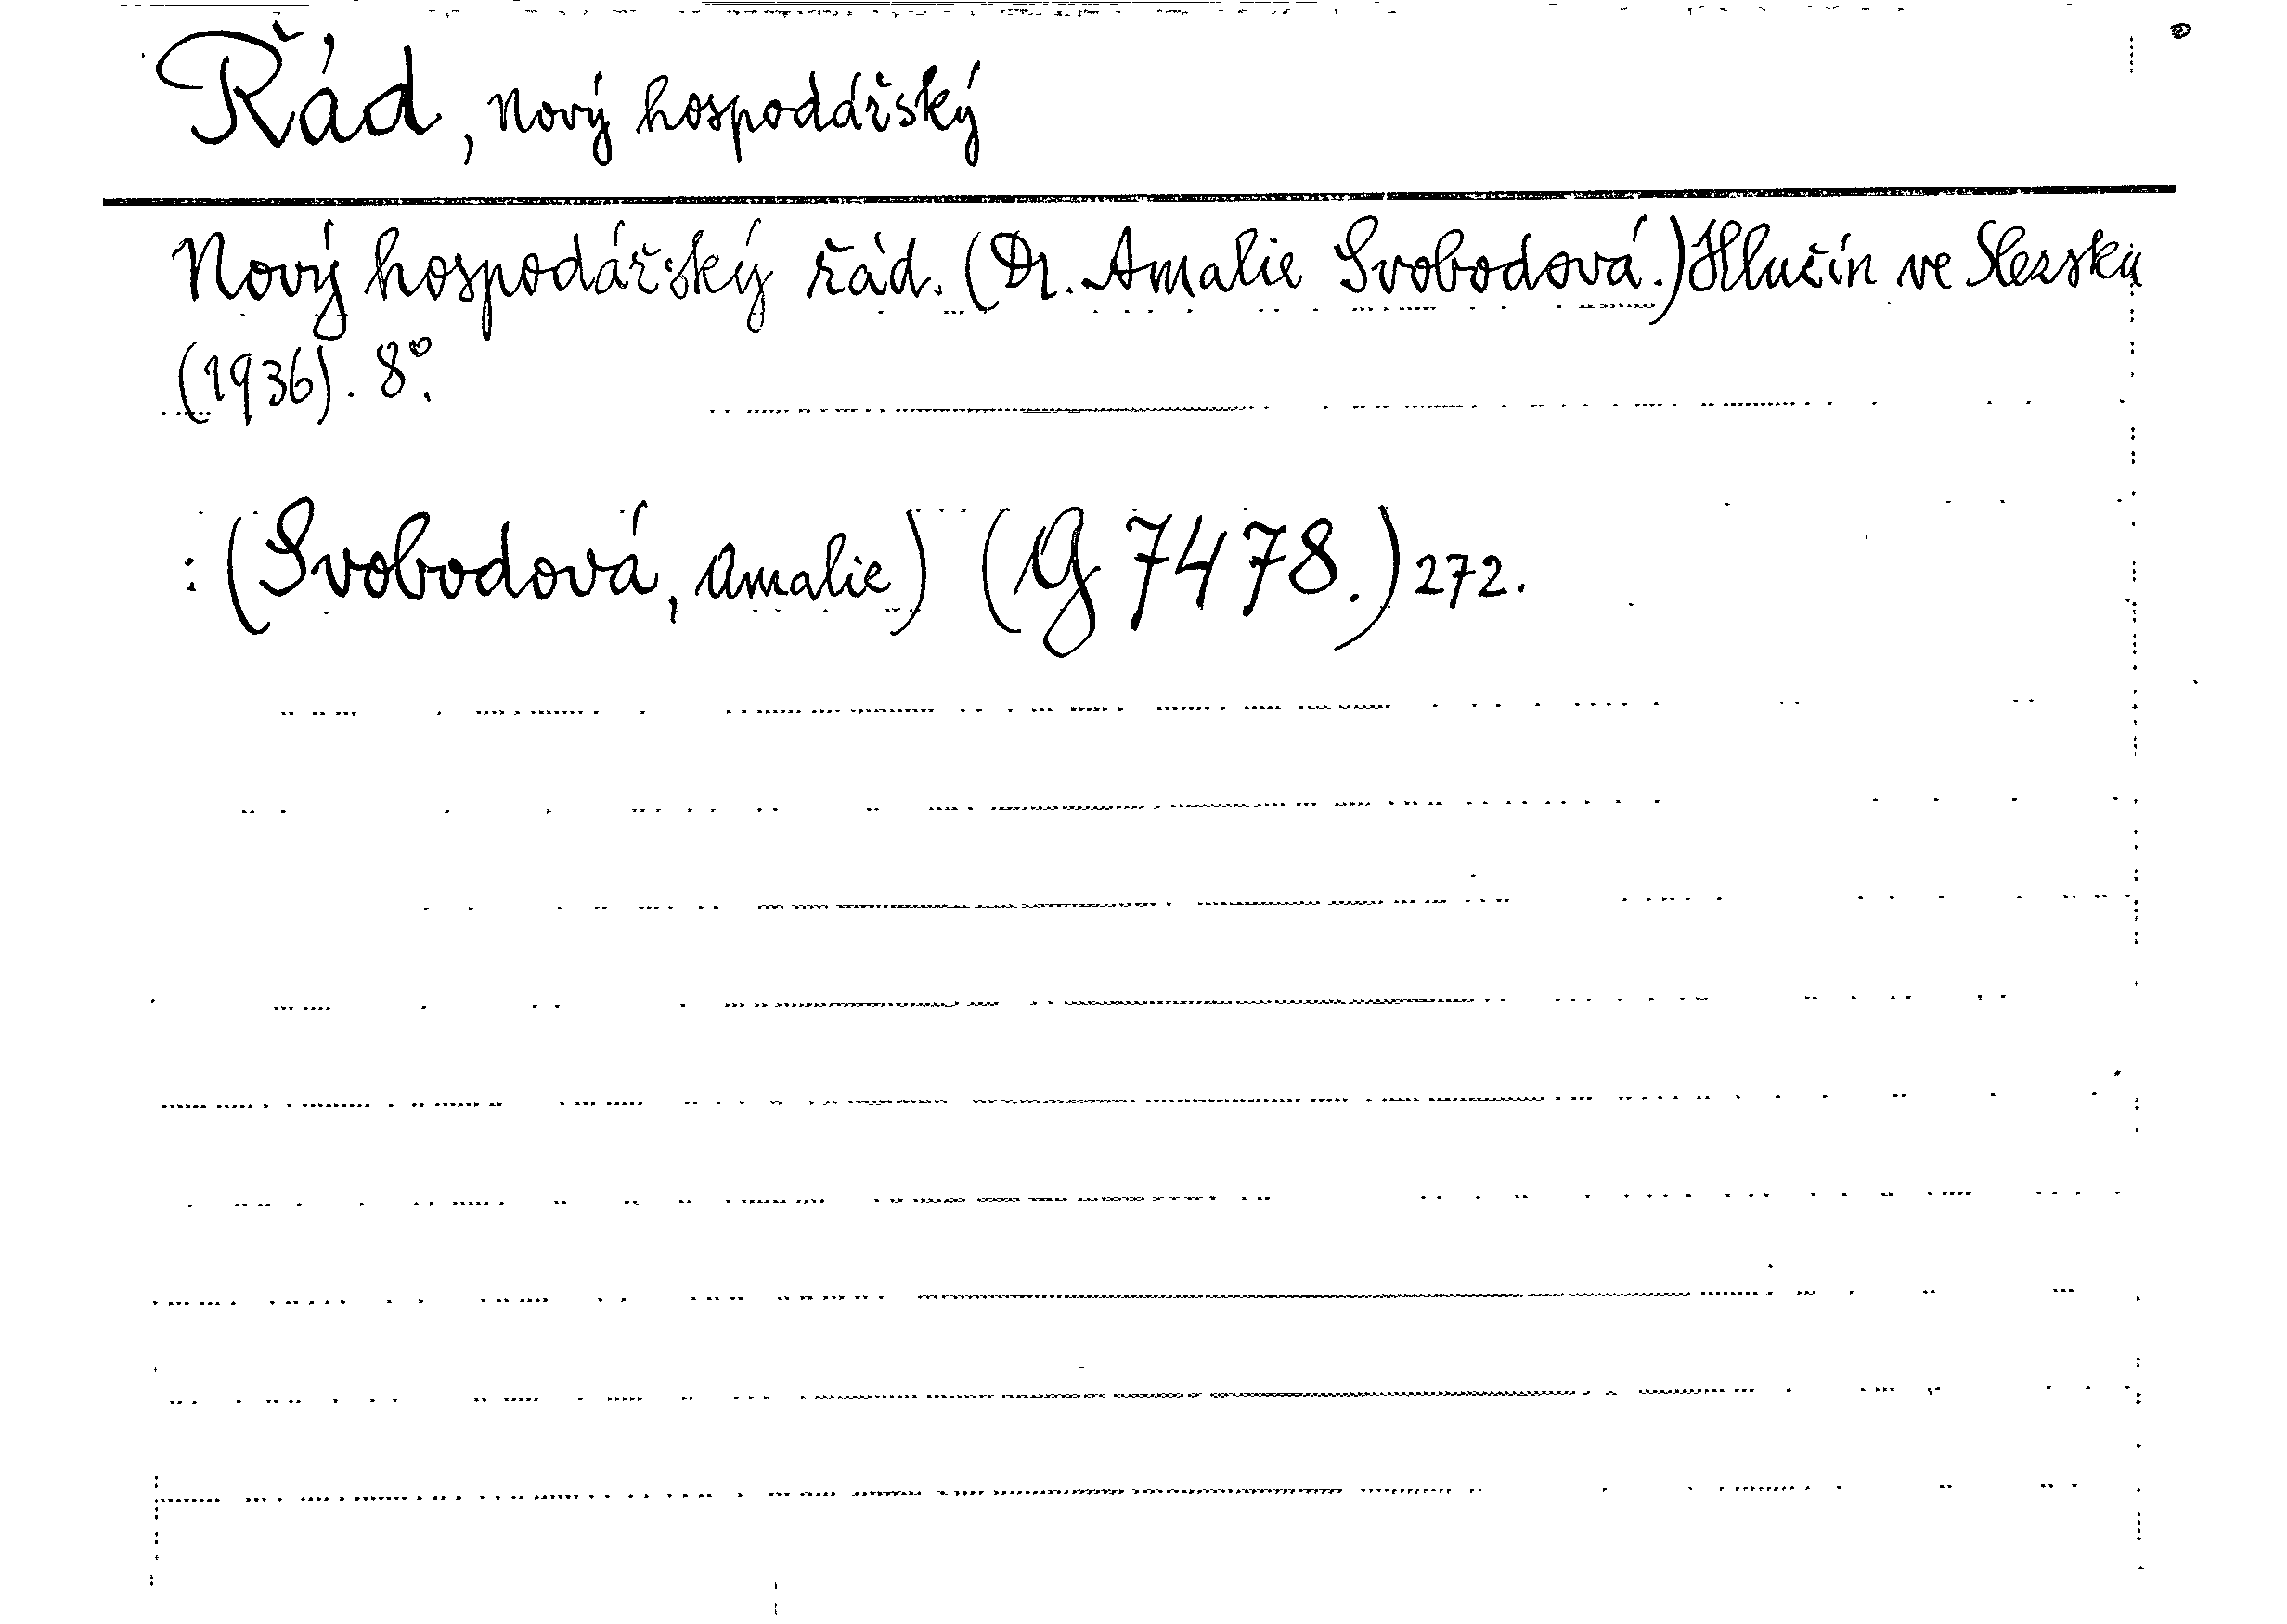 Řád, nový hospodářský
Nový hospodářský řád. (Dr. Amalie Svobodová.) Hlučín ve Slezsku
(1936). 8°.
: (Svobodová, Amalie) (G 7478.) 272.